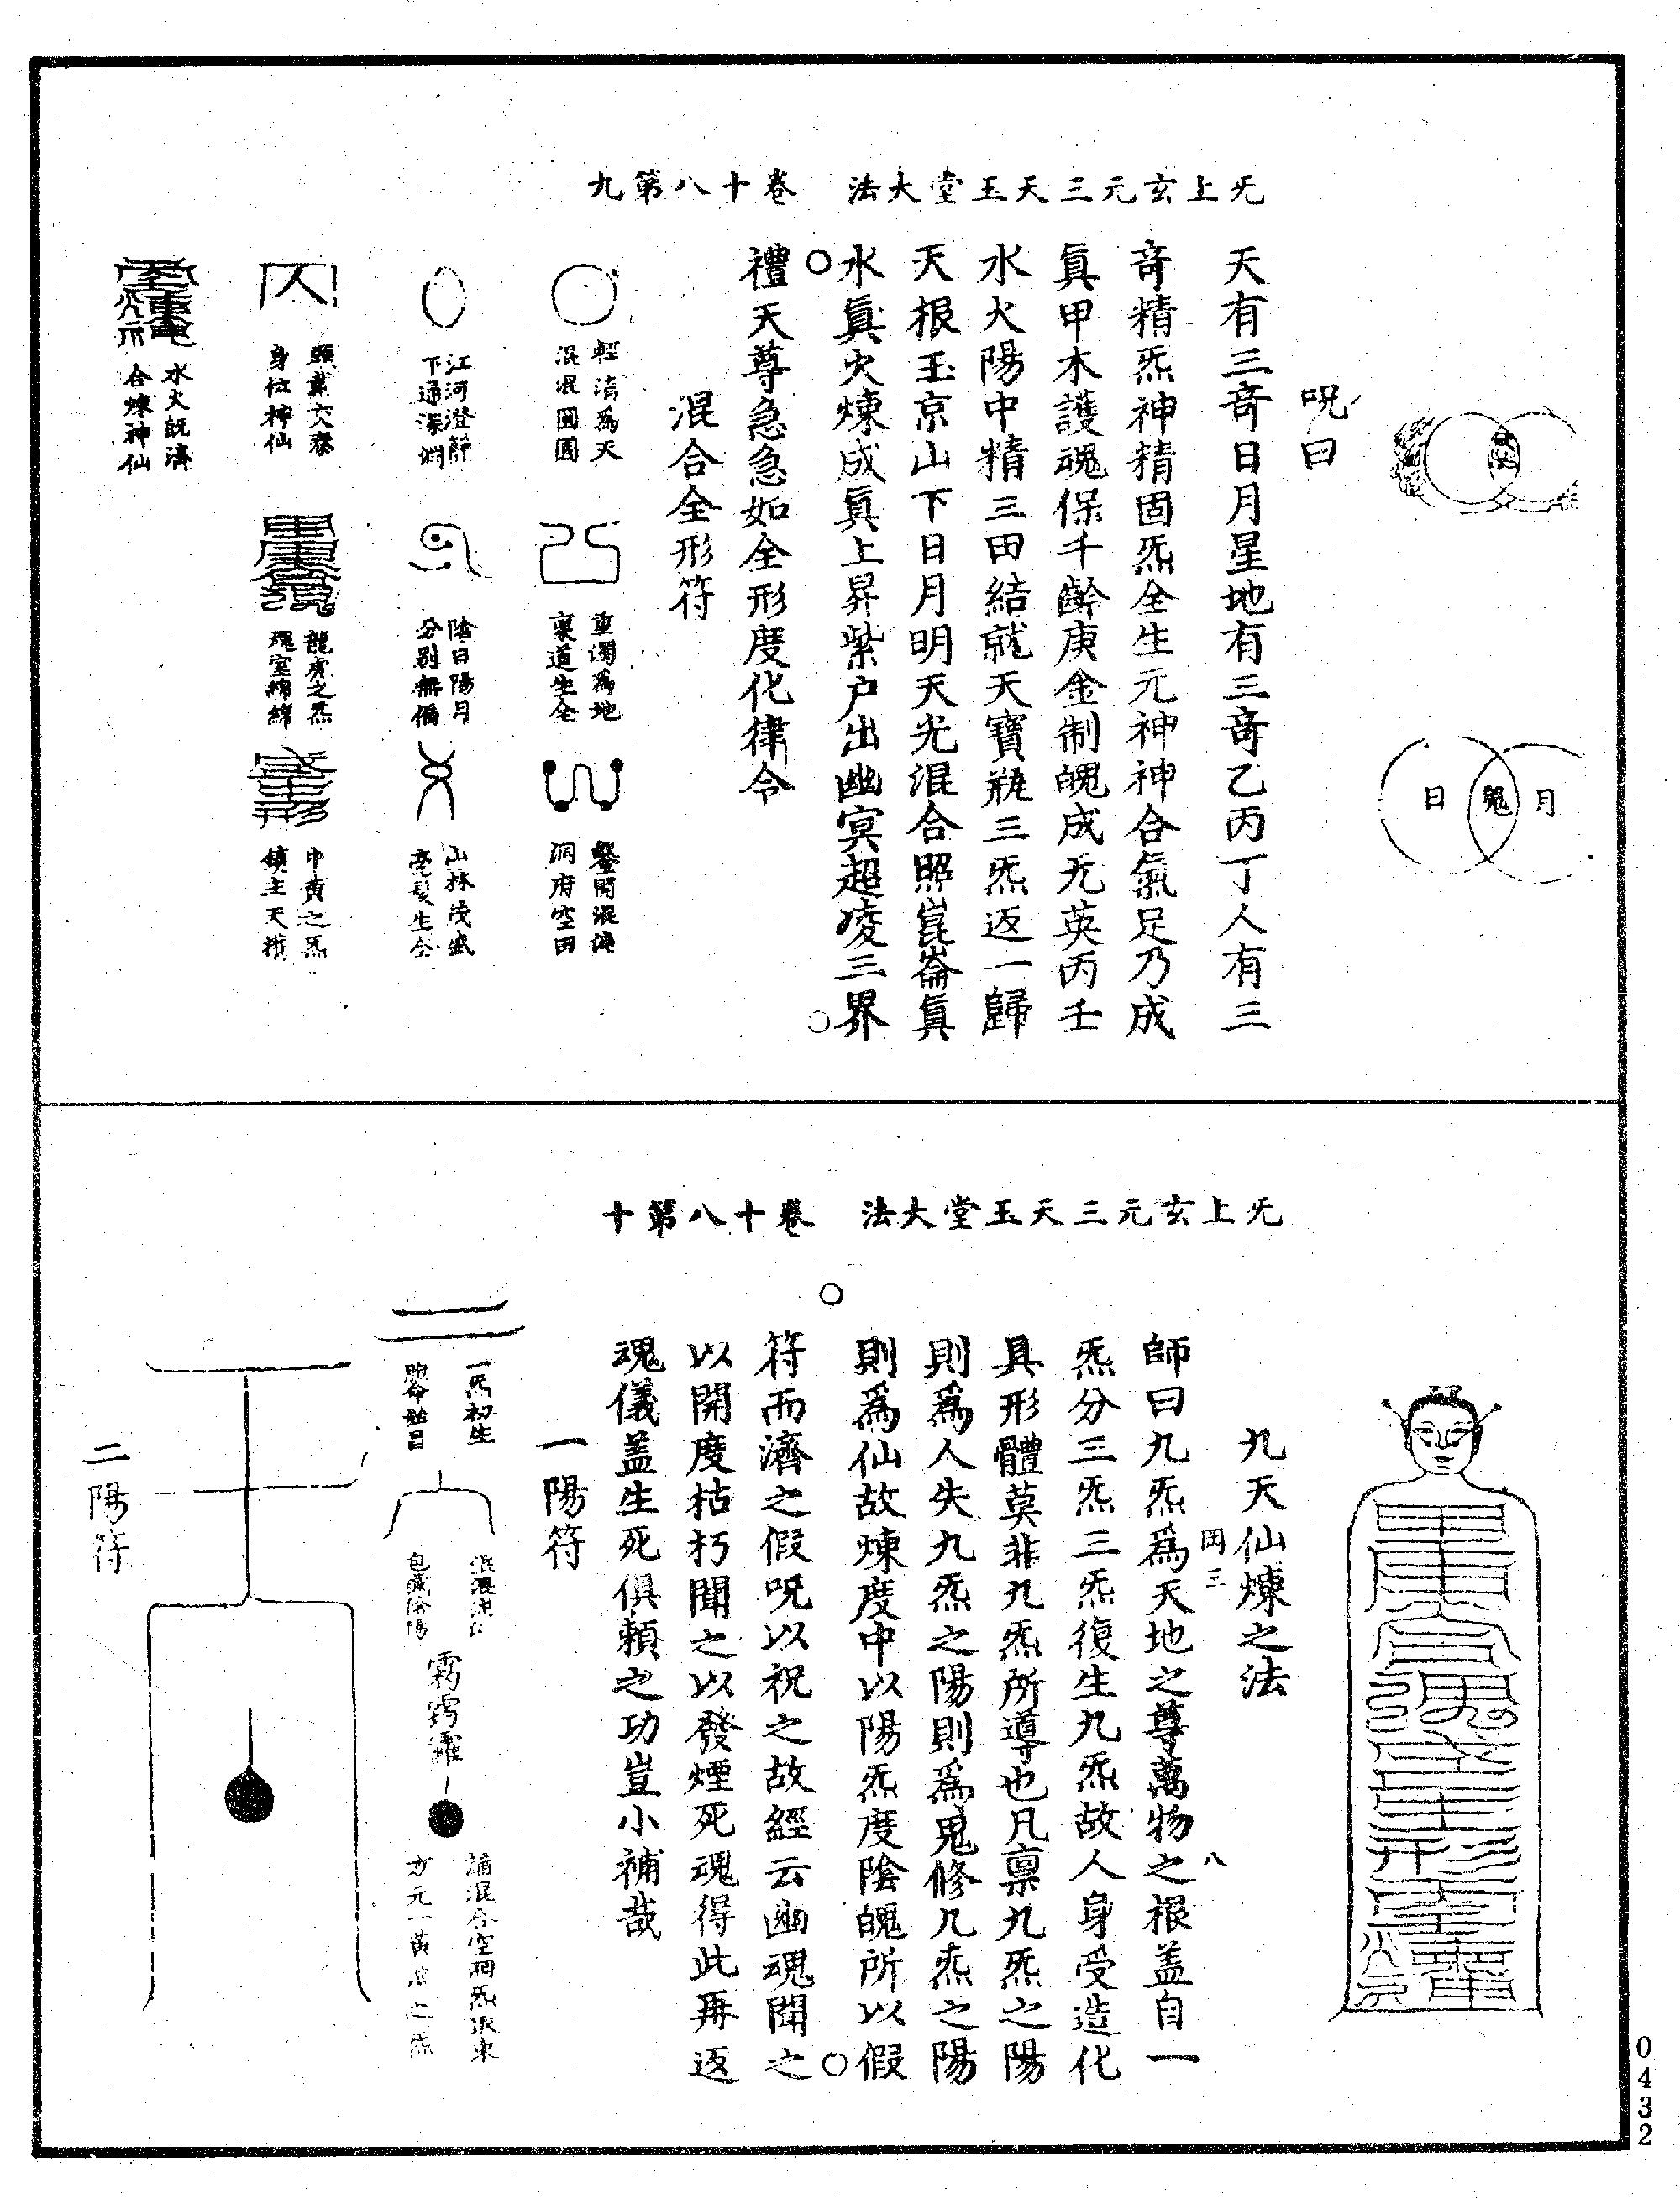 无上玄元三天玉堂大法　卷十八第九
日
鬼
月
呪曰
天有三奇日月星地有三奇乙丙丁人有三
奇精炁神精固炁全生元神神合氣足乃成
眞甲木護魂保千齡庚金制魄成无英丙壬
水火陽中精三田結就天寶瓶三炁返一歸
天根玉京山下日月明天光混合照崑崙眞
水眞火煉成眞上昇紫户出幽冥超凌三界
禮天尊急急如全形度化律令
混合全形符
輕清爲天
混混圓圓
重濁爲地
稟道生全
鑿開混沌
洞府空田
江河澄靜
下通深淵
陰日陽月
分别無偏
山林茂盛
亳髮生全
頭戴六泰
身位神仙
龍虎之炁
魂室綿綿
中黄之炁
鎮主天
水火既濟
合煉神仙
无上玄元三天玉堂大法　卷十八第十
九天仙煉之法
岡三
八
師曰九炁爲天地之尊萬物之根盖自一
炁分三炁三炁復生九炁故人身受造化
具形體莫非九炁所導也凡稟九炁之陽
則爲人失九炁之陽則爲鬼修九炁之陽
則爲仙故煉度中以陽炁度陰魄所以假
符而濟之假呪以祝之故經云幽魂聞之
以開度枯朽聞之以發煙死魂得此再返
魂儀盖生死俱頼之功豈小補哉
一陽符
一炁初生
胞命始昌
包藏陰陽
誦混合空洞炁取東
方元一黄之炁
二陽符
0432